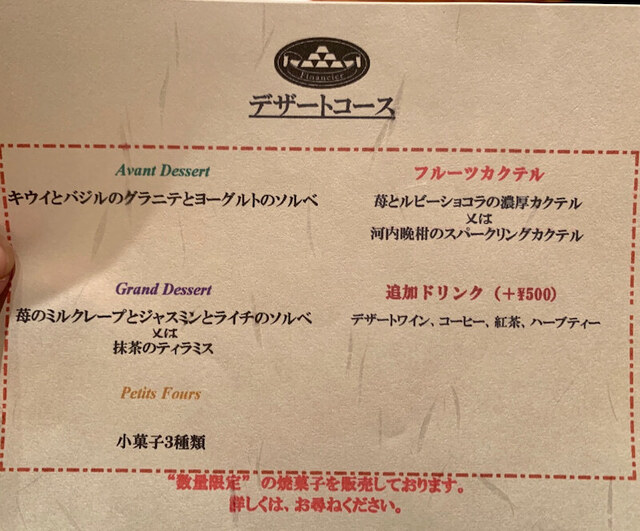 Financier
デザートコース
Avant Dessert
キウイとバジルのグラニテとヨーグルトのソルベ
Grand Dessert
苺のミルクレープとジャスミンとライチのソルベ
又は
抹茶のティラミス
Petits Fours
小菓子3種類
フルーツカクテル
苺とルビーショコラの濃厚カクテル
又は
河内晩柑のスパークリングカクテル
追加ドリンク（+¥500）
デザートワイン、コーヒー、紅茶、ハーブティー
“数量限定” の焼菓子を販売しております。
詳しくは、お尋ねください。